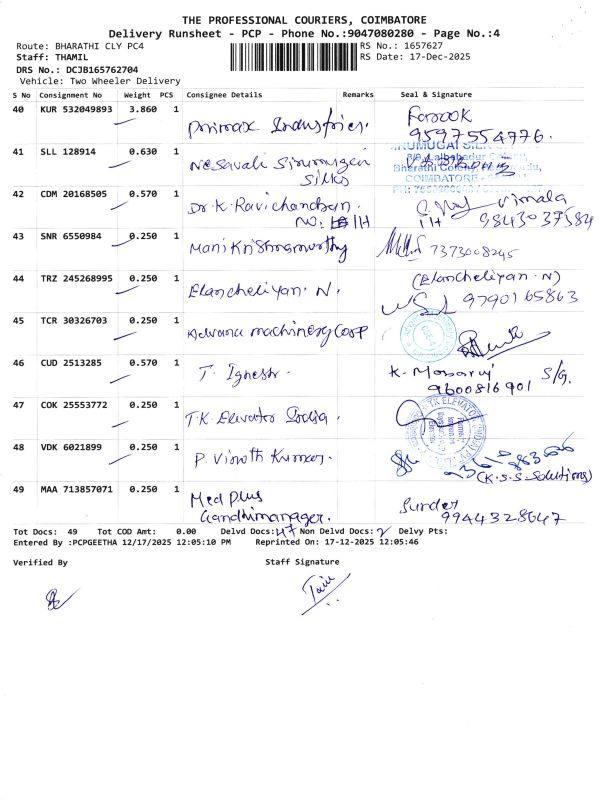 THE PROFESSIONAL COURIERS, COIMBATORE
Delivery Runsheet - PCP - Phone No.:9047080280 - Page No.:4
Route: BHARATHI CLY PC4
RS No.: 1657627
Staff: THAMIL
RS Date: 17-Dec-2025
DRS No.: DCJB165762704
Vehicle: Two Wheeler Delivery
S No Consignment No Weight PCS Consignee Details Remarks Seal & Signature
40 KUR 532049893 3.860 1 Primax Industries. Farook
9597554776.
41 SLL 128914 0.630 1 Nesavali Sirumugai
Silks
COIMBATORE
42 CDM 20168505 0.570 1 Dr. K. Ravichandran. Vimala
No: 1H 1H 9843037584
43 SNR 6550984 0.250 1 Mani Krishnamurthy 7373008245
44 TRZ 245268995 0.250 1 Elancheliyan. N. (Elancheliyan. N)
9790165863
45 TCR 30326703 0.250 1 Advana machinery Corp
46 CUD 2513285 0.570 1 T. Ignesh. K. S/G.
9600816901
47 COK 25553772 0.250 1 T.K. Elevator India.
48 VDK 6021899 0.250 1 P. Vinoth Kumar.
(K.S.S Solutions)
49 MAA 713857071 0.250 1 Med Plus Sunder
Gandhimanager. 9944328647
Tot Docs: 49 Tot COD Amt: 0.00 Delvd Docs: 47 Non Delvd Docs: 2 Delvy Pts:
Entered By :PCPGEETHA 12/17/2025 12:05:10 PM Reprinted On: 17-12-2025 12:05:46
Verified By Staff Signature